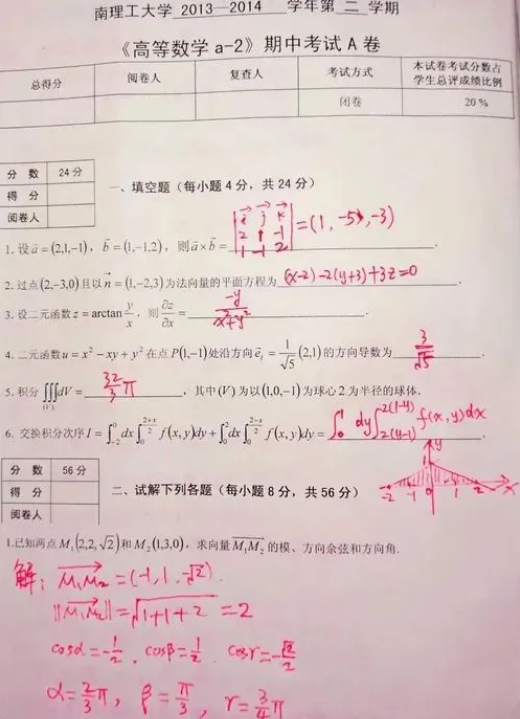 南理工大学 2013—2014 学年第 二 学期
《高等数学 a-2》期中考试 A 卷
总得分 阅卷人 复查人 考试方式 本试卷考试分数占学生总评成绩比例
闭卷 20 %
分 数 24 分
得 分
阅卷人
一、填空题（每小题 4 分，共 24 分）
|i→ j→ k→; 2 1 -1; 1 -1 2| = (1, -5, -3)
1. 设 a→ = (2,1,-1)，b→ = (1,-1,2)，则 a→×b→ =
2. 过点(2,-3,0)且以 n→ = (1,-2,3)为法向量的平面方程为 (x-2)-2(y+3)+3z=0
3. 设二元函数 z = arctan y/x，则 ∂z/∂x = -y/(x²+y²)
4. 二元函数 u = x² - xy + y² 在点 P(1,-1)处沿方向 e→ₗ = 1/√5 (2,1)的方向导数为 3/√5
5. 积分 ∭(V) dV = 32/3 π，其中(V)为以(1,0,-1)为球心 2 为半径的球体.
6. 交换积分次序 I = ∫₋₂⁰ dx ∫₀^((2+x)/2) f(x,y)dy + ∫₀² dx ∫₀^((2-x)/2) f(x,y)dy = ∫₀¹ dy ∫_(2(y-1))^(2(1-y)) f(x,y)dx
y
1
-2 -1 0 1 2 x
分 数 56 分
得 分
阅卷人
二、试解下列各题（每小题 8 分，共 56 分）
1.已知两点 M₁(2,2,√2)和 M₂(1,3,0)，求向量 M₁M₂→ 的模、方向余弦和方向角.
解：M₁M₂→ = (-1, 1, -√2).
||M₁M₂→|| = √(1+1+2) = 2
cosα = -1/2, cosβ = 1/2 cosγ = -√2/2
α = 2/3 π, β = π/3, γ = 3/4 π